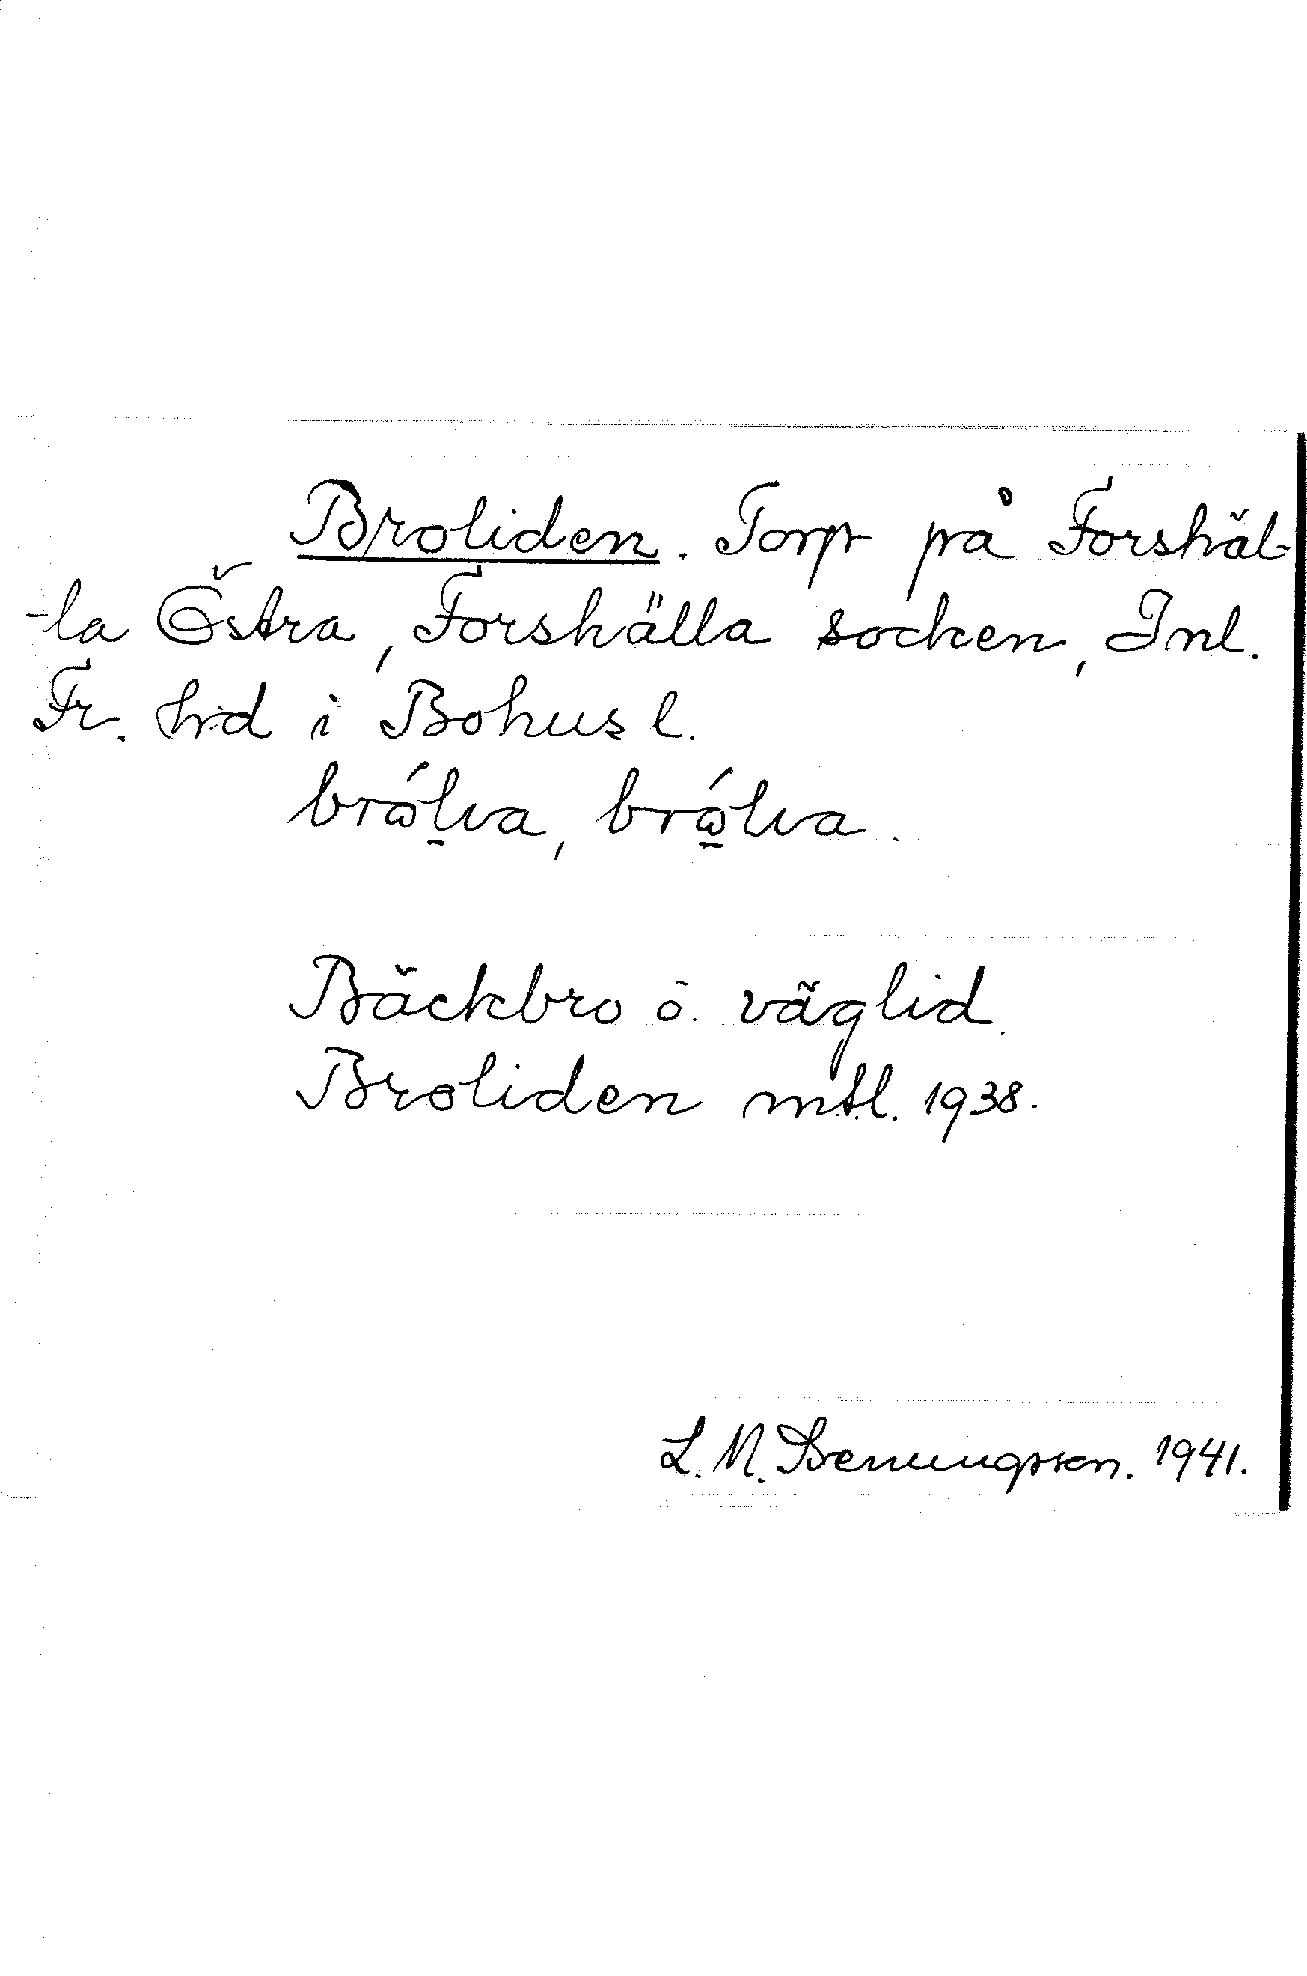 Broliden. Torp på Forshäl-
-la Östra, Forshälla socken, Inl.
Fr. hrd i Bohusl.
Bäckbro o. väglid.
Broliden mtl. 1938.
L. M. Svenungsson. 1941.